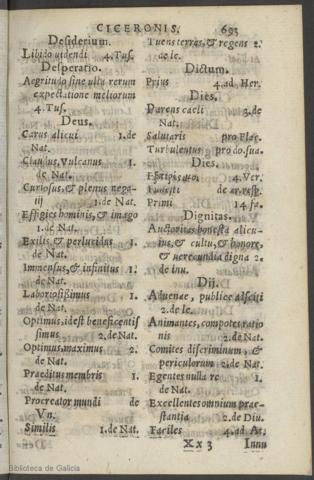 CICERONIS. 693
Desiderium.
Libido uidendi 4. Tus.
Desperatio.
Aegritudo sine ulla rerum
expectatione meliorum
4. Tus.
Deus.
Carus alicui 1. de
Nat.
Claudus, Vulcanus 1.
de Nat.
Curiosus, & plenus nego
tij 1. de Nat.
Effigies hominis, & imago
1. de Nat.
Exilis, & perlucidus 1.
de Nat.
Immensus, & infinitus 1.
de Nat.
Laboriosißimus 1.
de Nat.
Optimus, id est beneficentis
simus 2. de Nat.
Optimus, maximus 2.
de Nat.
Praeditus membris 1.
de Nat.
Procreator mundi de
Vn.
Similis 1. de Nat.
Tuens terras, & regens 2.
de le.
Dictum.
Prius 4. ad Her.
Dies.
Parens caeli 3. de
Nat.
Salutaris pro Flac.
Turbulentus pro do. sua.
Dies.
4. Ver.
Funesti de ar. resp.
Primi 14 fa.
Dignitas.
Auctoritas honesta alicu-
ius, & cultu, & honore,
& uerecundia digna 2.
de inu.
Dij.
Aduenae, publice adsciti
2. de le.
Animantes, compotes ratio
nis 2. de Nat.
Comites discriminum, &
periculorum 2. de Nat.
Egentes nulla re 1.
de Nat.
Excellentes omnium prae-
stantia 2. de Diu.
Faciles 4. ad At.
Xx 3 Innu
Biblioteca de Galicia